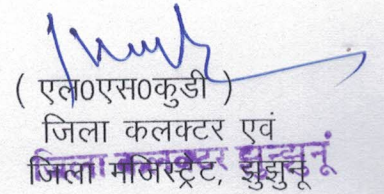 ( एल0एस0कुडी )
जिला कलक्टर एवं
जिला मजिस्ट्रेट, झुंझुनू
जिला कलक्टर झुन्झुनूं